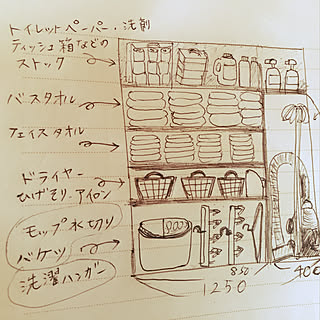 トイレットペーパー・洗剤
ティッシュ箱などの
ストック
バスタオル
フェイスタオル
ドライヤー
ひげそり・アイロン
モップ水切り
バケツ
洗濯ハンガー
850
1250
400